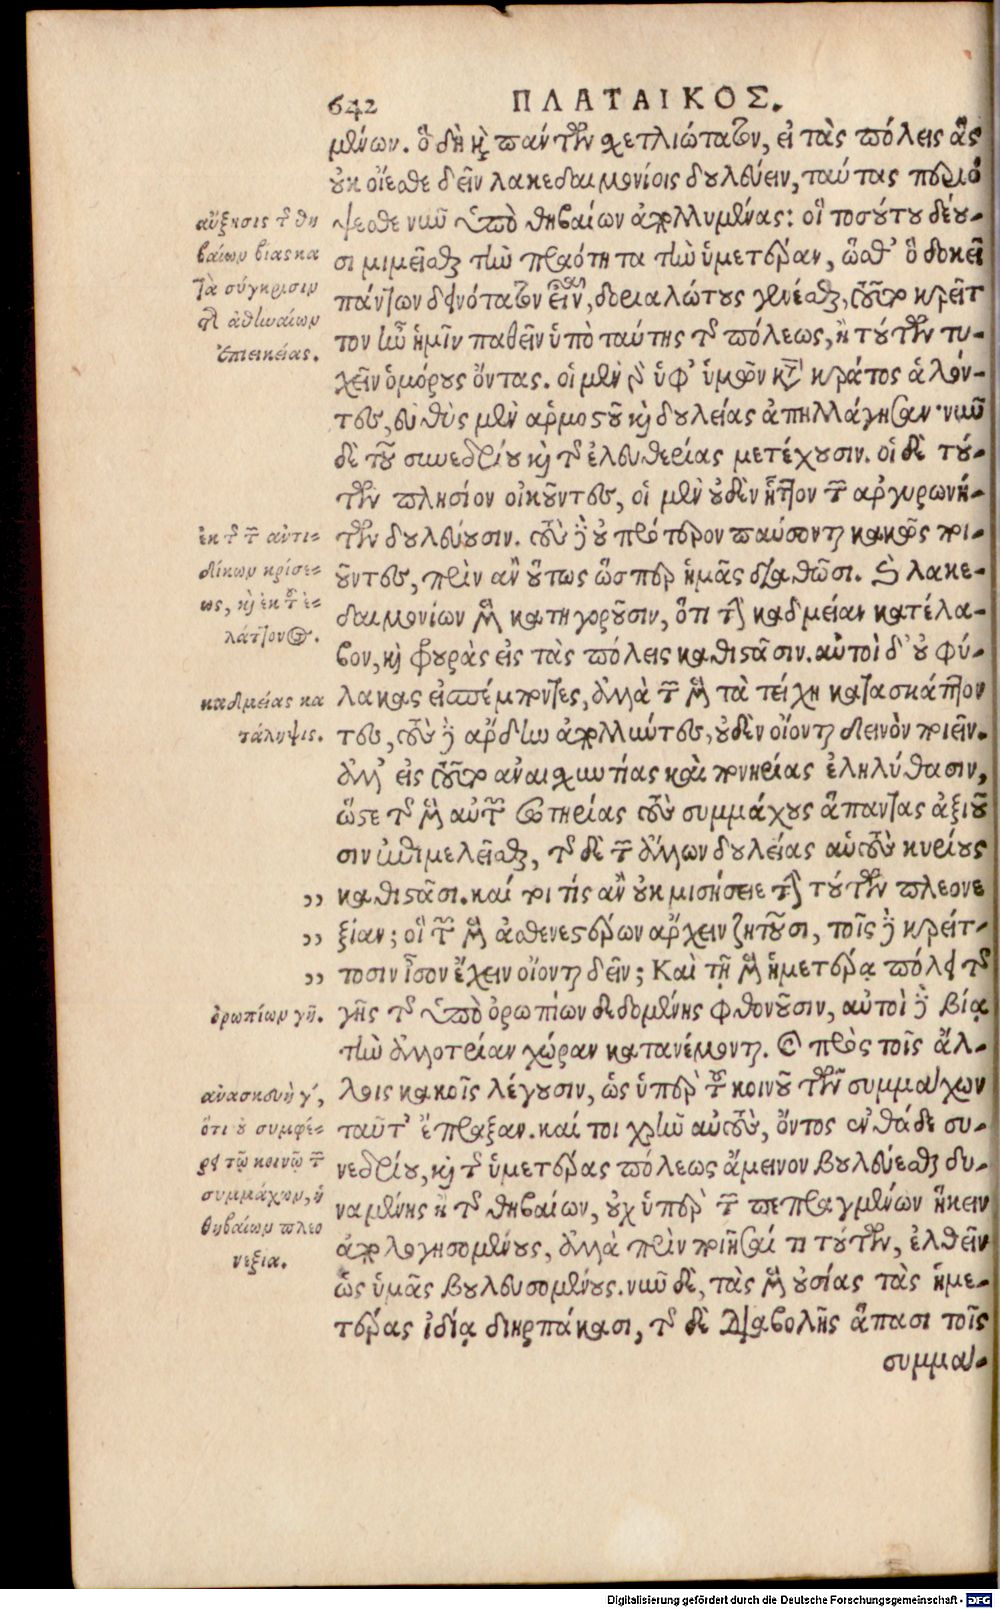 642 ΠΛΑΤΑΙΚΟΣ.
μένων. ὃ δὴ καὶ πάντων σχετλιώτατον, εἰ τὰς πόλεις ἃς
οὐκ οἴεσθε δεῖν λακεδαιμονίοις δουλεύειν, ταύτας περιό
ψεσθε νῦν ὑπὸ θηβαίων ἀπολλυμένας: οἳ τοσούτου δέου-
σι μιμεῖσθαι τὴν πραότητα τὴν ὑμετέραν, ὥσθ' ὃ δοκεῖ
πάντων δεινότατον εἶναι, δοριαλώτους γενέσθαι, τοῦτο κρεῖτ
τον ἦν ἡμῖν παθεῖν ὑπὸ ταύτης τῆς πόλεως, ἢ τούτων τυ-
χεῖν ὁμόρους ὄντας. οἱ μὲν γὰρ ὑφ' ὑμῶν κατὰ κράτος ἁλόν-
τες, εὐθὺς μὲν ἁρμοστοῦ καὶ δουλείας ἀπηλλάγησαν· νῦν
δὲ τοῦ συνεδρίου καὶ τῆς ἐλευθερίας μετέχουσιν. οἱ δὲ τού-
των πλησίον οἰκοῦντες, οἱ μὲν οὐδὲν ἧττον τῶν ἀργυρωνή-
των δουλεύουσιν. τοὺς δὲ οὐ πρότερον παύσονται κακῶς ποι-
οῦντες, πρὶν ἂν οὕτως ὥσπερ ἡμᾶς διαθῶσι. καὶ λακε-
δαιμονίων μὲν κατηγοροῦσιν, ὅτι τὴν καδμείαν κατέλα-
βον, καὶ φρουρὰς εἰς τὰς πόλεις καθιστᾶσιν. αὐτοὶ δ' οὐ φύ-
λακας εἰσπέμποντες, ἀλλὰ τῶν μὲν τὰ τείχη κατασκάπτον
τες, τοὺς δὲ ἄρδην ἀπολλύντες, οὐδὲν οἴονται δεινὸν ποιεῖν.
ἀλλ' εἰς τοῦτο ἀναισχυντίας καὶ πονηρίας ἐληλύθασιν,
ὥστε τῆς μὲν αὐτῶν σωτηρίας τοὺς συμμάχους ἅπαντας ἀξιοῦ
σιν ἐπιμελεῖσθαι, τῆς δὲ τῶν ἄλλων δουλείας αὑτοὺς κυρίους
,, καθιστᾶσι. καί τοι τίς ἂν οὐκ μισήσειε τὴν τούτων πλεονε
,, ξίαν; οἳ τῶν μὲν ἀσθενεστέρων ἄρχειν ζητοῦσι, τοῖς δὲ κρείτ-
,, τοσιν ἴσον ἔχειν οἴονται δεῖν; Καὶ τῇ μὲν ἡμετέρᾳ πόλει τῆς
γῆς τῆς ὑπὸ ὀρωπίων δεδομένης φθονοῦσιν, αὐτοὶ δὲ βίᾳ
τὴν ἀλλοτρίαν χώραν κατανέμονται. Καὶ πρὸς τοῖς ἄλ-
λοις κακοῖς λέγουσιν, ὡς ὑπὲρ τοῦ κοινοῦ τῶν συμμάχων
ταῦτ' ἔπραξαν. καί τοι χρῆν αὐτοὺς, ὄντος ἐνθάδε συ-
νεδρίου, καὶ τῆς ὑμετέρας πόλεως ἄμεινον βουλεύεσθαι δυ-
ναμένης ἢ τῆς θηβαίων, οὐχ ὑπὲρ τῶν πεπραγμένων ἥκειν
ἀπολογησομένους, ἀλλὰ πρὶν ποιῆσαί τι τούτων, ἐλθεῖν
ὡς ὑμᾶς βουλευσομένους. νῦν δὲ, τὰς μὲν οὐσίας τὰς ἡμε-
τέρας ἰδίᾳ διηρπάκασι, τῆς δὲ διαβολῆς ἅπασι τοῖς
συμμά-
αὔξησις τῆς θη
βαίων βίας κα
τὰ σύγκρισιν
τῆς ἀθηναίων
ἐπιεικείας.
ἐκ τῆς τῶν ἀντι-
δίκων κρίσε-
ως, καὶ ἐκ τοῦ ἐ-
λάττονος.
καδμείας κα
τάληψις.
ὀρωπίων γῆ.
ἀνασκευὴ γ',
ὅτι οὐ συμφέ-
ρει τῷ κοινῷ τῶν
συμμάχων, ἡ
θηβαίων πλεο
νεξία.
Digitalisierung gefördert durch die Deutsche Forschungsgemeinschaft - DFG